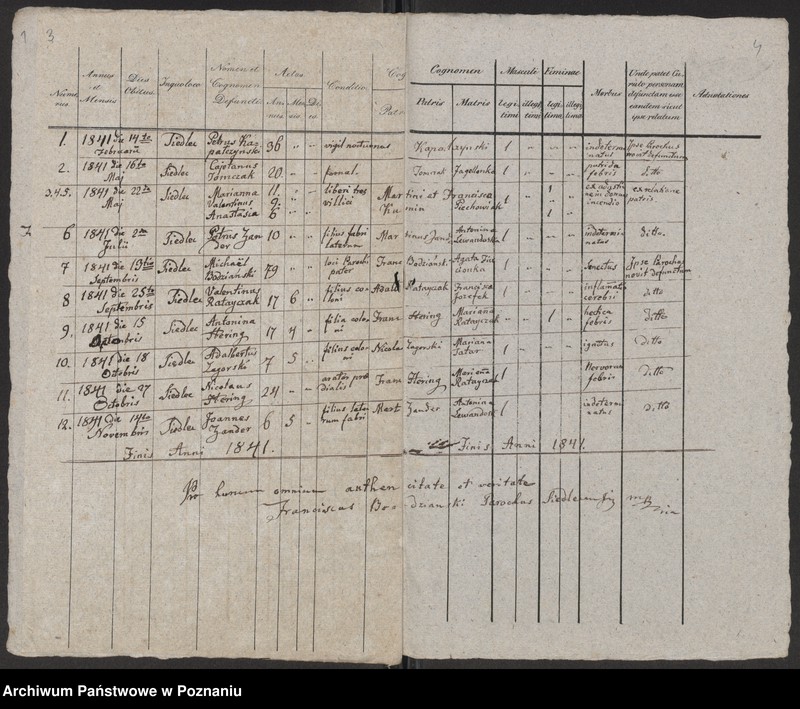 3
4
Nume-rus. Annus et Mensis Dies Obitus. In quo loco Nomen et Cognomen Defuncti Aetas Annus Mensis Dies Conditio Cognomen Patris Matris Masculi legitimi illegitimi Fiminae legitima illegitima Morbus Unde patet Curato personam defunctam esse eandem sicut ipse relatum. Adnotationes
1. 1841 die 14ta Februarii Siedlec Petrus Kapałczyński 36 " " vigil nocturnus Kapałczyński 1 indeterminatus Ipse Parochus novit defunctum
2. 1841 die 16ta Maj Siedlec Cajetanus Tomczak 20 " " famul. Tomczak Jagellonka 1 putrida febris ditto
3.4.5. 1841 die 22ta Maj Siedlec Marianna Valentinus Anastasia 11 9 6 liberi tres villici Martini et Francisca Kumin Piechowiak 1 1 1 incendio ex relatione patris
6 1841 die 2da Julii Siedlec Petrus Zander 10 " " filius fabri laterum Martinus Zand. Antonina Lewandoska 1 indeterminatus ditto.
7 1841 die 19ta Septembris Siedlec Michaël Bodziański 79 " " pater Franc Bodziańsk. Agata 1 Senectus Ipse Parochus novit defunctum
8 1841 die 25ta Septembris Siedlec Valentinus Ratayczak 17 6 " filius coloni Adalb Ratayczak Francisca Jozefek 1 inflamatio cerebri ditto
9. 1841 die 15 Octobris Siedlec Antonina Hëring 17 4 " filia coloni Franc Hëring Marianna Ratayczak 1 hectica febris ditto
10. 1841 die 18 Octobris Siedlec Adalbertus Zagorski 7 5 " filius coloni Nicolai Zagorski Marianna Tatar 1 ignotus Ditto
11. 1841 die 27 Octobris Siedlec Nicolaus Hëring 24 " " arator praedialis Franc Hëring Marianna Ratayczak 1 Nervorum febris Ditto
12. 1841 die 14ta Novembris Siedlec Joannes Zander 6 5 " filius laterum fabri Mart Zander Antonina Lewandosk 1 indeterminatus ditto
Finis Anni 1841. Finis Anni 1841.
Pro horum omnium authen citate et veritate
Franciscus Bo dzianski Parochus Siedlecensis mp
Archiwum Państwowe w Poznaniu